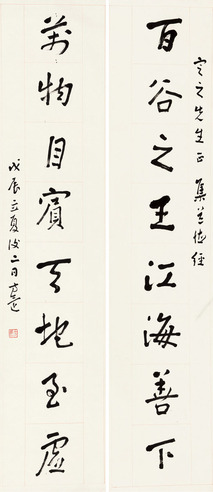 定之先生正 集道德經
百谷之王江海善下
萬物自賓天地至虛
戊辰立夏後二日 方還